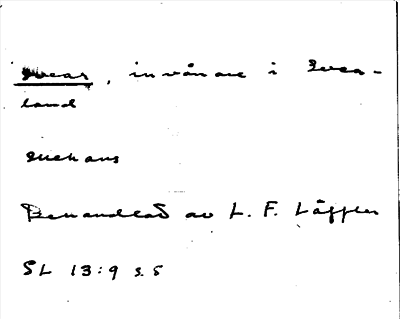 svear, invånare i Svea-
land
suehans
Behandlad av L. F. Läffler
SL 13:9 s. 5